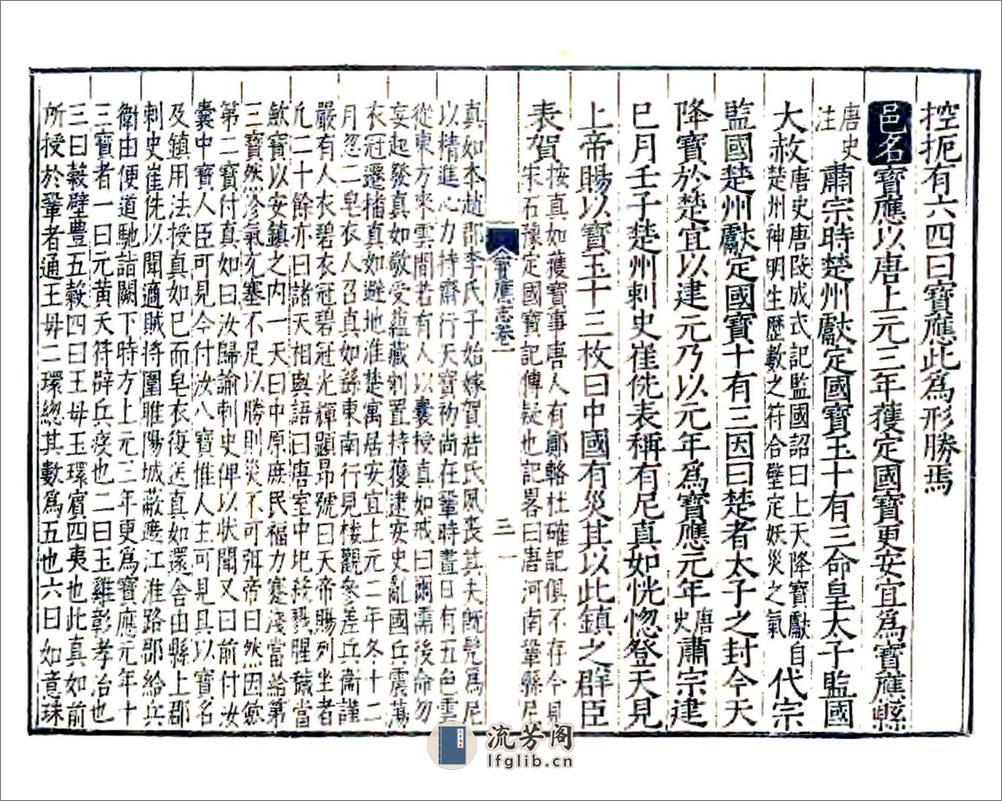 控扼有六四曰寶應此爲形勝焉
邑名寶應以唐上元三年獲定國寶更安宜爲寶應縣
唐史注肅宗時楚州獻定國寶玉十有三命皇太子監國
大赦唐史唐段成式記監國詔曰上天降寶獻自楚州神明生歷數之符合璧定妖災之氣代宗
監國楚州獻定國寶十有三因曰楚者太子之封今天
降寶於楚宜以建元乃以元年爲寶應元年唐史肅宗建
巳月壬子楚州刺史崔侁表稱有尼真如恍惚登天見
上帝賜以寶玉十三枚曰中國有災其以此鎮之群臣
表賀按真如獲寶事唐人有鄭輅杜確記俱不存今見宋石豫定國寶記傳疑也記畧曰唐河南鞏縣尼
寶應志卷一
三一
真如本趙郡李氏子始嫁賀若氏夙喪其夫旣髡爲尼
以精進心力持齋行天寶初尚在鞏時晝日有五色雲
從東方來雲間若有人以囊授真如戒曰爾需後命勿
妄起發真如敬受韞藏置持獲逮安史亂國兵震蕩
衣冠遷播真如避地淮楚寓居安宜上元二年冬十二
月忽二皂衣人召真如繇東南行見樓觀參差兵衞謹
嚴有人衣碧衣冠碧冠光輝顯昂號曰天帝賜列坐者
凡二十餘亦曰諸天相與語曰唐室中圯殺戮腥穢當
敘寶以安鎮之内一天曰中原庶民福力寡淺當論第
三寶然沴氣充塞不足以勝則災不可弭帝曰然因敘
第二寶付真如曰汝歸諭刺史俾以狀聞又曰前付汝
囊中寶人臣可見今付汝八寶惟人主可見具以寶名
及鎮用法授真如已而皂衣復送真如還舍由縣上郡
刺史崔侁以聞適賊將圍睢陽城蔽遮江淮路郡給兵
衞由便道馳詣闕下時方上元三年更爲寶應元年十
三寶者一曰元黃天符辟兵疫也二曰玉雞彰孝治也
三曰穀璧豐五穀四曰王母玉環賓四夷也此真如前
所授於鞏者通王母二環總其數爲五也六曰如意珠
流芳阁
lfglib.cn